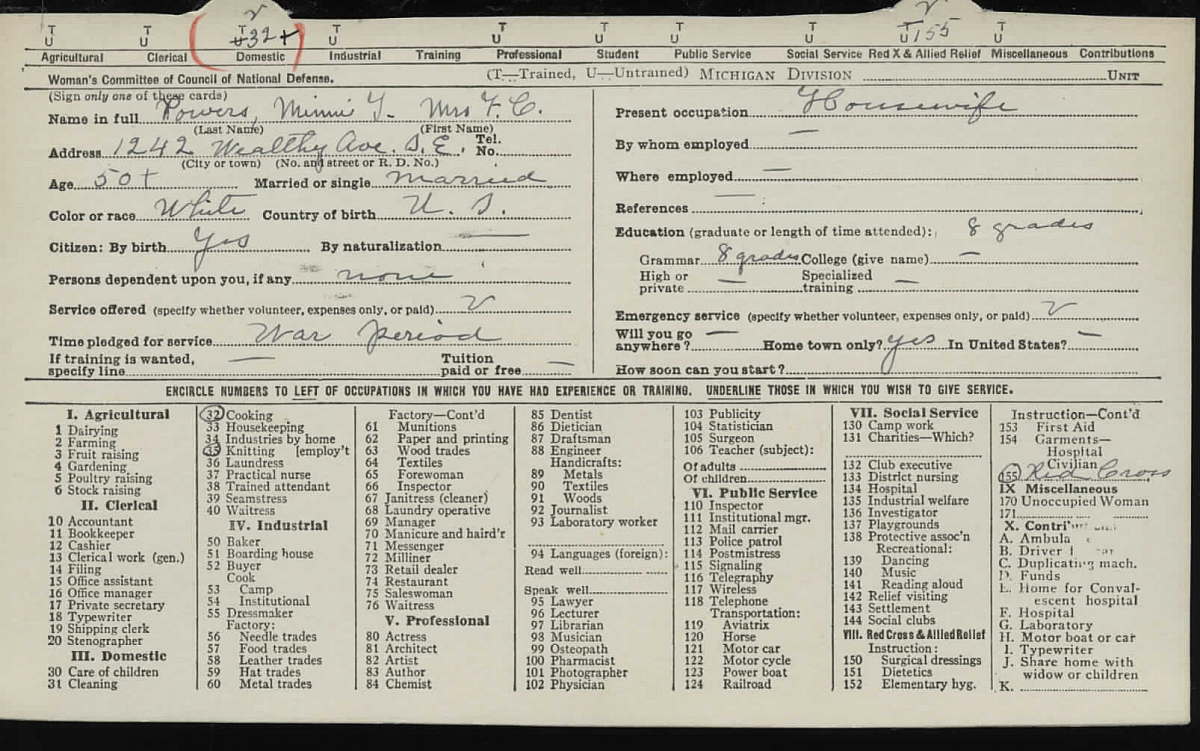 T U T U T U 32+ T U T U T U T U T U T U 155 T U
Agricultural Clerical Domestic Industrial Training Professional Student Public Service Social Service Red X & Allied Relief Miscellaneous Contributions
Woman's Committee of Council of National Defense. (T—Trained, U—Untrained) MICHIGAN DIVISION UNIT
(Sign only one of these cards)
Name in full Powers, Minnie Y. Mrs F. C.
(Last Name) (First Name)
Address 1242 Wealthy Ave. S. E. Tel. No.
(City or town) (No. and street or R. D. No.)
Age 50+ Married or single married
Color or race White Country of birth U. S.
Citizen: By birth Yes By naturalization —
Persons dependent upon you, if any none
Service offered (specify whether volunteer, expenses only, or paid) V
Time pledged for service War period
If training is wanted, specify line — Tuition paid or free —
Present occupation Housewife
By whom employed —
Where employed —
References —
Education (graduate or length of time attended): 8 grades
Grammar 8 grades College (give name) —
High or private — Specialized training —
Emergency service (specify whether volunteer, expenses only, or paid) V
Will you go anywhere? — Home town only? yes In United States? —
How soon can you start?
ENCIRCLE NUMBERS TO LEFT OF OCCUPATIONS IN WHICH YOU HAVE HAD EXPERIENCE OR TRAINING. UNDERLINE THOSE IN WHICH YOU WISH TO GIVE SERVICE.
I. Agricultural
1 Dairying
2 Farming
3 Fruit raising
4 Gardening
5 Poultry raising
6 Stock raising
II. Clerical
10 Accountant
11 Bookkeeper
12 Cashier
13 Clerical work (gen.)
14 Filing
15 Office assistant
16 Office manager
17 Private secretary
18 Typewriter
19 Shipping clerk
20 Stenographer
III. Domestic
30 Care of children
31 Cleaning
32 Cooking
33 Housekeeping
34 Industries by home
35 Knitting [employ't
36 Laundress
37 Practical nurse
38 Trained attendant
39 Seamstress
40 Waitress
IV. Industrial
50 Baker
51 Boarding house
52 Buyer
Cook
53 Camp
54 Institutional
55 Dressmaker
Factory:
56 Needle trades
57 Food trades
58 Leather trades
59 Hat trades
60 Metal trades
Factory—Cont'd
61 Munitions
62 Paper and printing
63 Wood trades
64 Textiles
65 Forewoman
66 Inspector
67 Janitress (cleaner)
68 Laundry operative
69 Manager
70 Manicure and haird'r
71 Messenger
72 Milliner
73 Retail dealer
74 Restaurant
75 Saleswoman
76 Waitress
V. Professional
80 Actress
81 Architect
82 Artist
83 Author
84 Chemist
85 Dentist
86 Dietician
87 Draftsman
88 Engineer
Handicrafts:
89 Metals
90 Textiles
91 Woods
92 Journalist
93 Laboratory worker
94 Languages (foreign):
Read well
Speak well
95 Lawyer
96 Lecturer
97 Librarian
98 Musician
99 Osteopath
100 Pharmacist
101 Photographer
102 Physician
103 Publicity
104 Statistician
105 Surgeon
106 Teacher (subject):
Of adults
Of children
VI. Public Service
110 Inspector
111 Institutional mgr.
112 Mail carrier
113 Police patrol
114 Postmistress
115 Signaling
116 Telegraphy
117 Wireless
118 Telephone
Transportation:
119 Aviatrix
120 Horse
121 Motor car
122 Motor cycle
123 Power boat
124 Railroad
VII. Social Service
130 Camp work
131 Charities—Which?
132 Club executive
133 District nursing
134 Hospital
135 Industrial welfare
136 Investigator
137 Playgrounds
138 Protective assoc'n
Recreational:
139 Dancing
140 Music
141 Reading aloud
142 Relief visiting
143 Settlement
144 Social clubs
VIII. Red Cross & Allied Relief
Instruction:
150 Surgical dressings
151 Dietetics
152 Elementary hyg.
Instruction—Cont'd
153 First Aid
154 Garments—
Hospital
Civilian
155 Red Cross
IX Miscellaneous
170 Unoccupied Woman
171
X. Contri
A. Ambula
B. Driver
C. Duplicating mach.
D. Funds
E. Home for Convalescent hospital
F. Hospital
G. Laboratory
H. Motor boat or car
I. Typewriter
J. Share home with
widow or children
K.